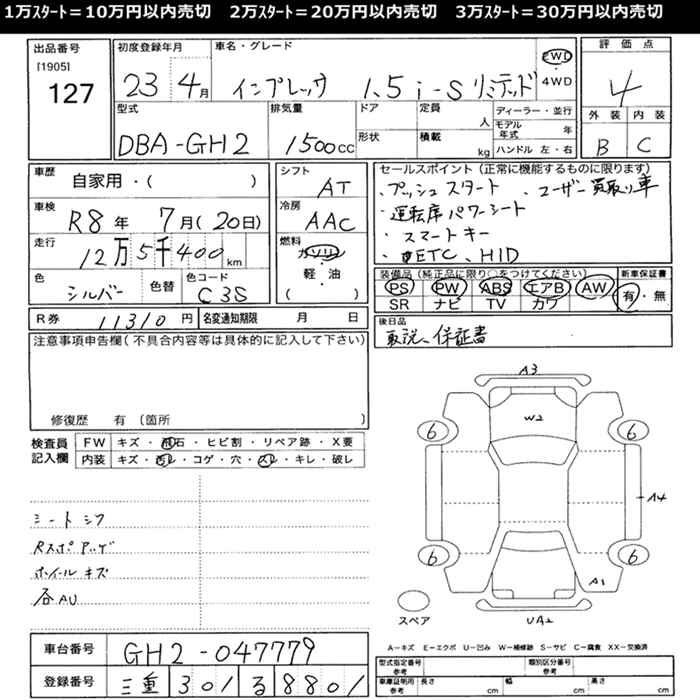 1万スタート＝10万円以内売切　2万スタート＝20万円以内売切　3万スタート＝30万円以内売切
出品番号
[1905]
127
初度登録年月
23 4月
車名・グレード
インプレッサ 1.5i-S リミテッド
FWD・4WD
評価点
4
型式
DBA-GH2
排気量
1500cc
ドア
形状
定員
人
積載
kg
ディーラー・並行
モデル年式 年
ハンドル 左・右
外装 内装
B C
車歴
自家用・( )
シフト
AT
車検
R8年 7月(20日)
冷房
AAC
走行
12万5千400km
燃料
ガソリン・軽・油
( )
色
シルバー
色替
色コード
C3S
R券 11310円
名変通知期限 月 日
セールスポイント(正常に機能するものに限ります)
・プッシュスタート ・ユーザー買取り車
・運転席パワーシート
・スマートキー
ETC、HID
装備品(純正品に限り○をつけてください)
新車保証書
PS PW ABS エアB AW
SR ナビ TV カワ
有・無
後日品
取説、保証書
注意事項申告欄(不具合内容等は具体的に記入して下さい)
修復歴 有 (箇所 )
検査員記入欄
FW キズ・飛石・ヒビ割・リペア跡・X要
内装 キズ・汚レ・コゲ・穴・スレ・キレ・破レ
シートシワ
ホイールキズ
各AU
A3
W2
6 6
A4
6 6
A1
UA2
スペア
A-キズ E-エクボ U-凹み W-補修跡 S-サビ C-腐食 XX-交換済
車台番号
GH2-047779
登録番号
三重 301 る 8801
型式指定番号 参考
類別区分番号 参考
車庫証明用 参考
長さ cm 幅 cm 高さ cm